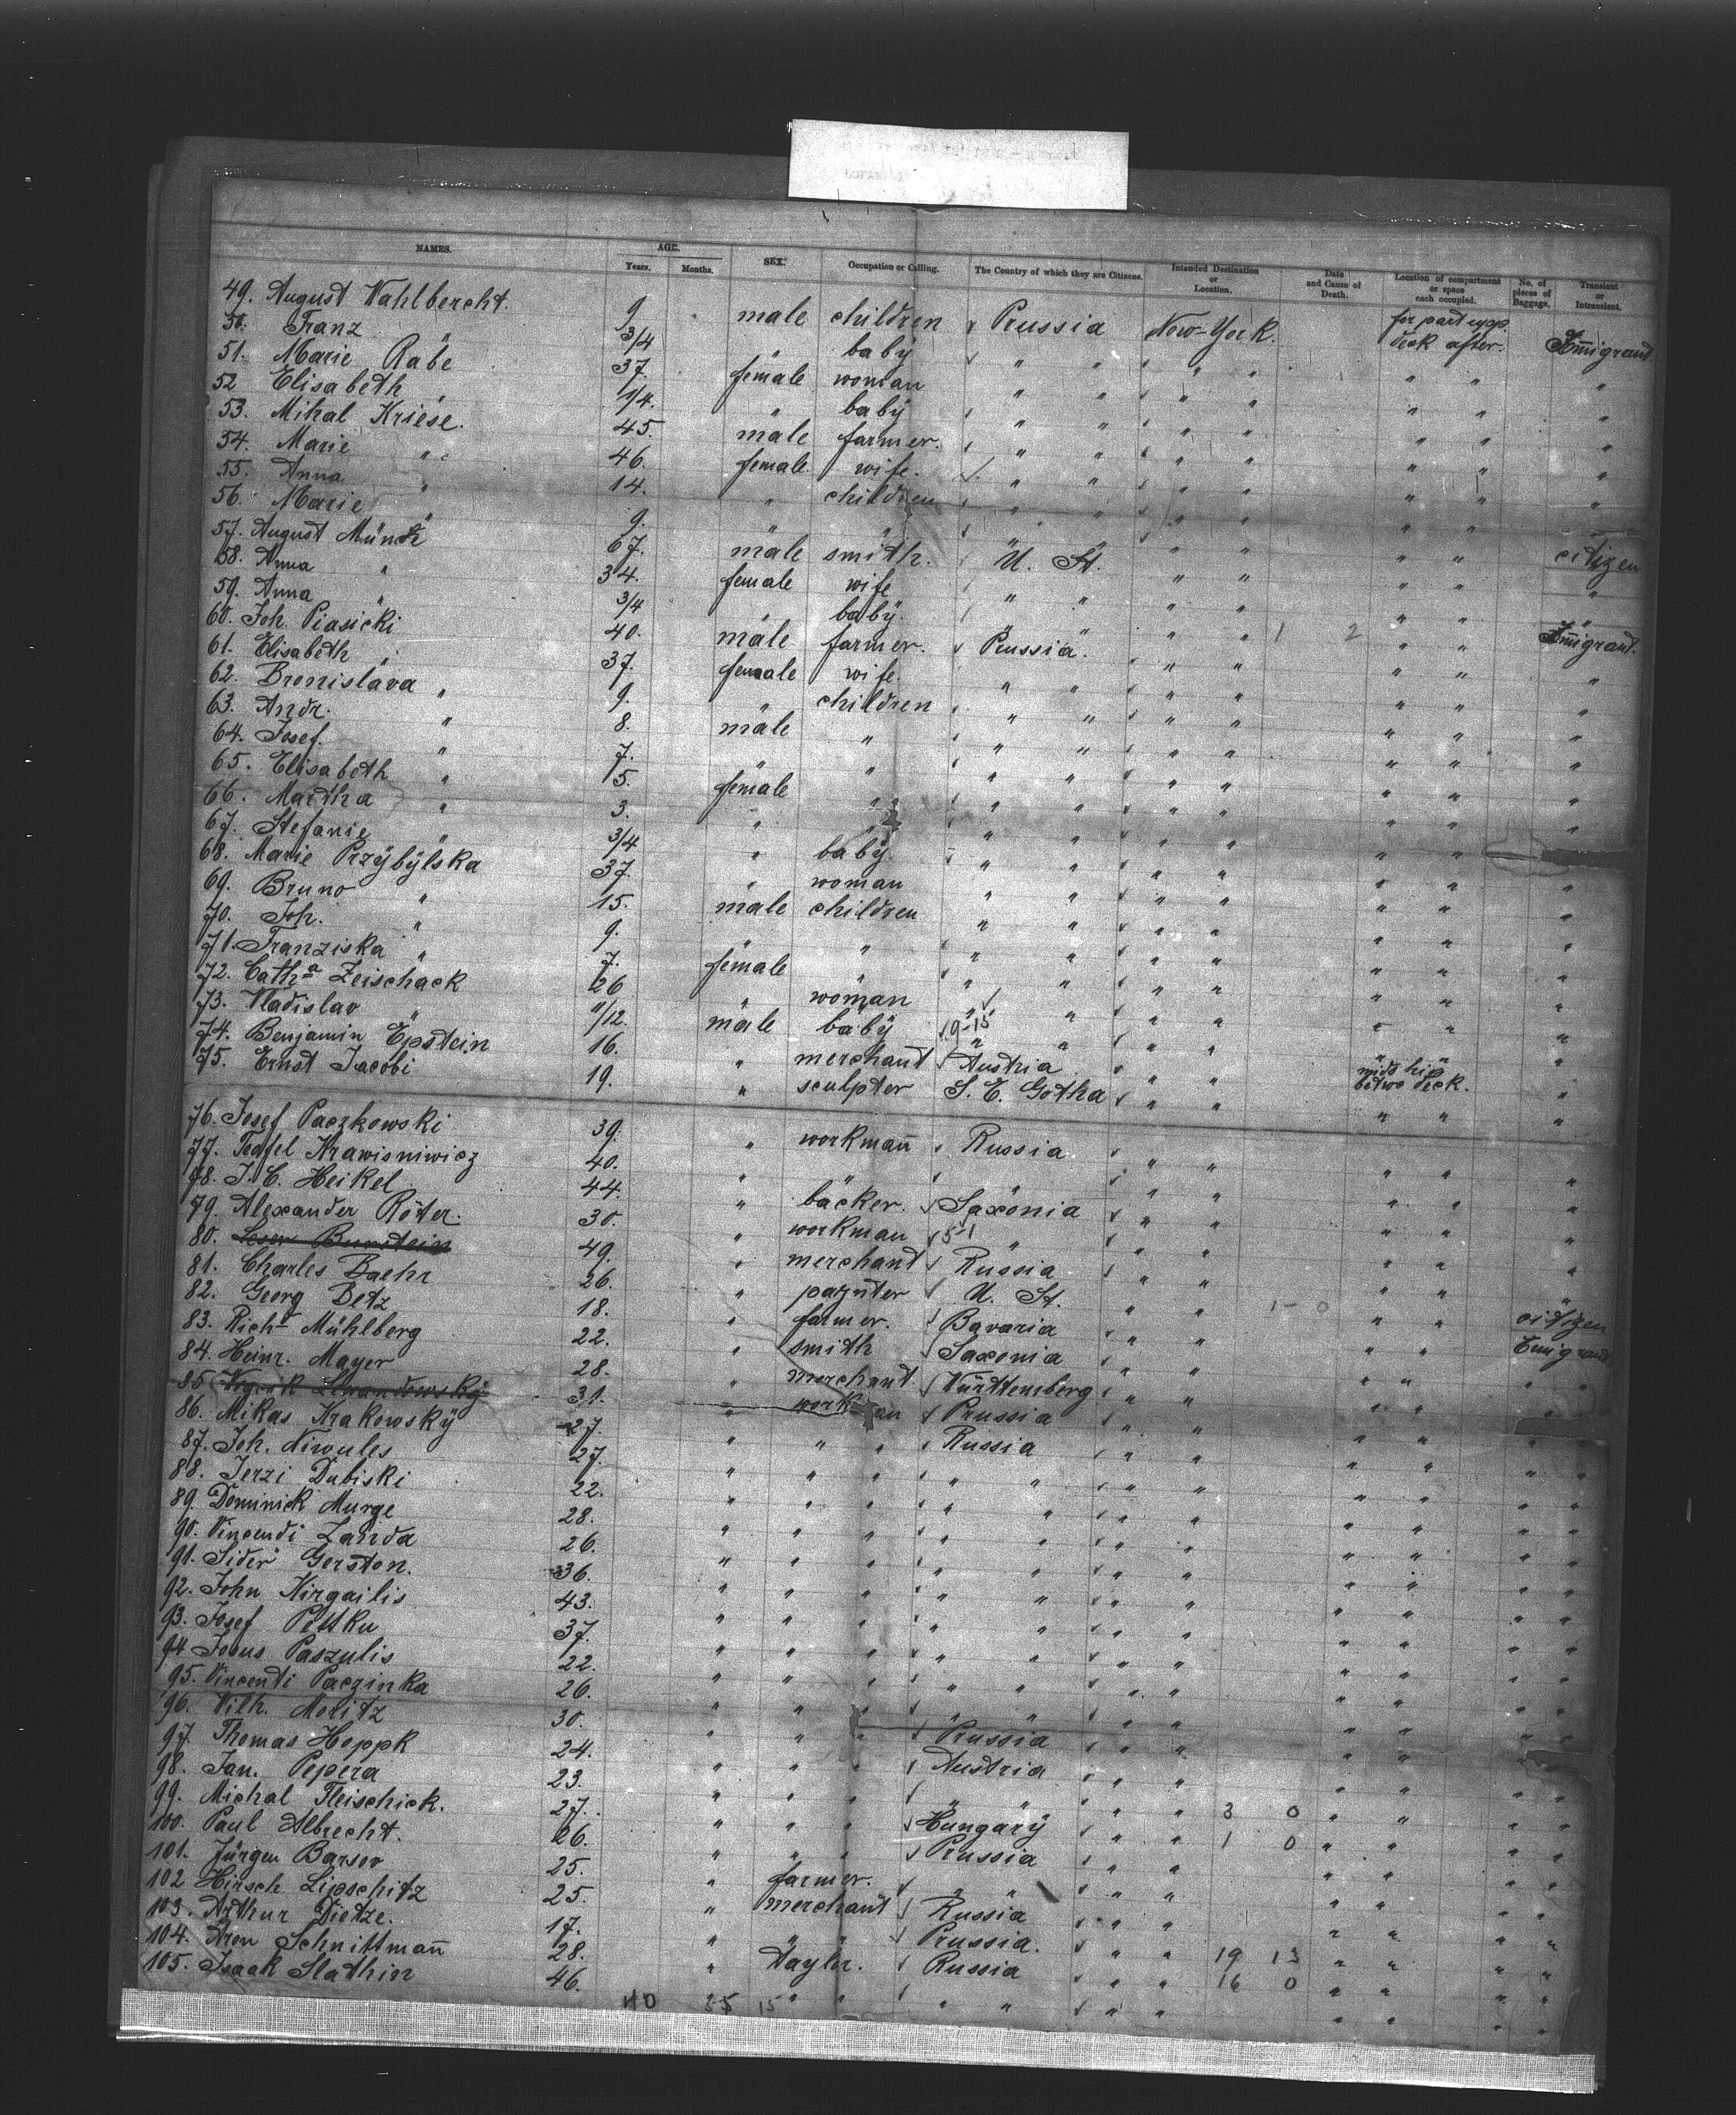 NAMES. AGE. SEX. Occupation or Calling. The Country of which they are Citizens. Intended Destination or Location. Date and Cause of Death. Location of compartment or space each occupied. No. of pieces of Baggage. Transient or Intransient.
Years. Months.
49. August Wahlbercht. 9 male children Prussia New-York. for part upp. deck after. Immigrant.
50. Franz " 3/4 " baby " " " " " " "
51. Marie Rabe 37. female woman " " " " " " "
52 Elisabeth " 1/4. " baby " " " " " " "
53. Mihal Kriese. 45. male farmer. " " " " " " "
54. Marie " 46. female wife. " " " " " " "
55. Anna " 14. " children " " " " " " "
56. Marie " 9. " " " " " " " " "
57. August Münch 67. male smith. U. St. " " " " citizen
58. Anna " 34. female wife " " " " " " "
59. Anna " 3/4 " baby. " " " " " " "
60. Joh. Piasicki 40. male farmer. Prussia. " " 1 2 " " Immigrant.
61. Elisabeth " 37. female wife. " " " " " " "
62. Bronislava " 9. " children " " " " " " "
63. Andr. " 8. male " " " " " " " "
64. Josef. " 7. " " " " " " " " "
65. Elisabeth " 5. female " " " " " " " "
66. Martha " 3. " " " " " " " " "
67. Stefanie " 3/4 " baby. " " " " " " "
68. Marie Przÿbÿlska 37. " woman " " " " " " "
69. Bruno " 15. male children " " " " " " "
70. Joh. " 9. " " " " " " " " "
71. Franziska " 7. female " " " " " " " "
72. Catha Zeischack 26 " woman " " " " " " "
73. Vladislav " 11/12. male baby 9-15 " " " " " " "
74. Benjamin Epstein 16. " merchant Austria " " " " "
75. Ernst Jacobi 19. " sculpter S. C. Gotha " " midship betwo deck. "
76. Josef Paczkowski 39. " workman Russia " " " " "
77. Teofel Krawisniwicz 40. " " " " " " " "
78. J. C. Heikel 44. " bäcker. Saxonia " " " " "
79. Alexander Röter. 30. " workman 5-1 " " " " " "
80. Leser Bunstein 49. " merchant Russia " " " " "
81. Charles Baehr 26. " paynter U. St. " " 1-0 " " citizen
82. Georg Betz 18. " farmer. Bavaria " " " " Emigrant
83. Rich Mühlberg 22. " smith Saxonia " " " " "
84. Heinr. Mayer 28. " merchant Württemberg " " " " "
85 Lewandowskÿ 31. " workman Prussia " " " " "
86. Mikas Krakowskÿ 27. " " " Russia " " " " " "
87. Joh. Niwules 27. " " " " " " " " " " "
88. Jerzi Dubiski 22. " " " " " " " " " " "
89. Dominick Murge 28. " " " " " " " " " " "
90. Vincendi Zanda 26. " " " " " " " " " " "
91. Sider Gerston. 36. " " " " " " " " " " "
92. John Kirgailis 43. " " " " " " " " " " "
93. Josef Pettku 37. " " " " " " " " " " "
94 Josus Paszulis 22. " " " " " " " " " " "
95. Vincenti Paczinka 26. " " " " " " " " " " "
96. Wilh. Molitz 30. " " " Prussia " " " " " "
97. Thomas Hoppk 24. " " " Austria " " " " " "
98. Jan. Pepera 23. " " " " " " " 3 0 " " " "
99. Michal Fleischick. 27. " " " Hungarÿ " " 1 0 " " " "
100. Paul Albrecht. 26. " " " Prussia " " " " " "
101. Jürgen Barsov 25. " farmer. " " " " " " " "
102 Hirsch Lipschitz 25. " merchant Russia " " " " " "
103. Arthur Dietze. 17. " " " Prussia. " " 19 13 " " " "
104. Aron Schnittman 28. " Tayler. Russia " " 16 0 " " " "
105. Isaak Slathin 46. " " " " " " " " " " "
40 35 15